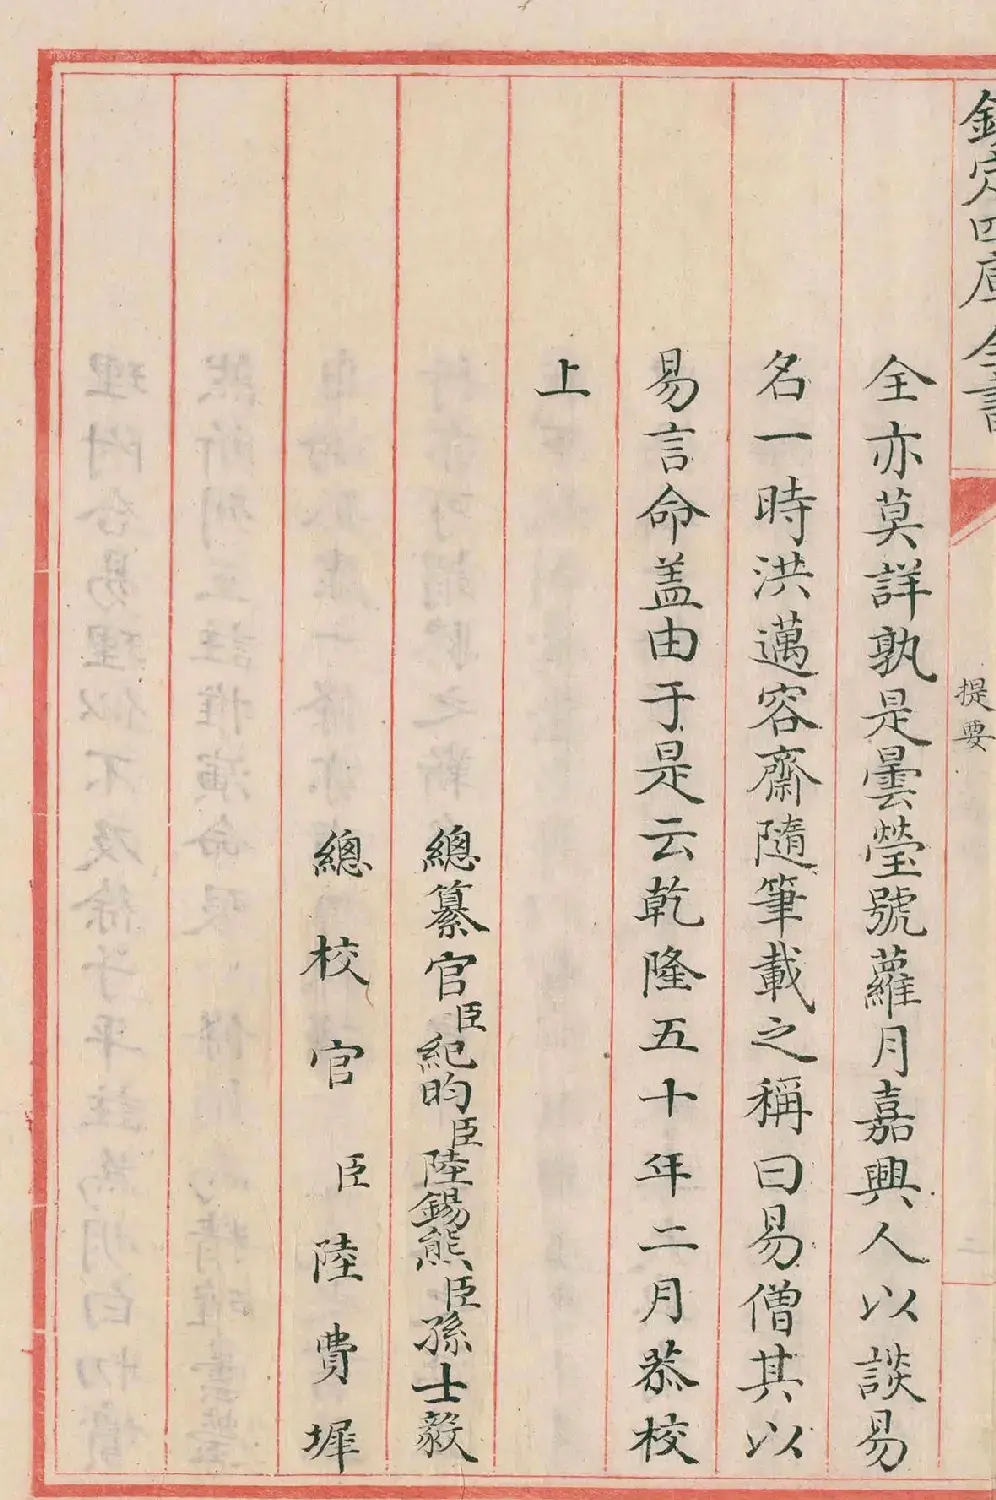 欽定四庫全書
提要
全亦莫詳孰是曇瑩號蘿月嘉興人以談易
名一時洪邁容齋隨筆載之稱曰易僧其以
易言命盖由于是云乾隆五十年二月恭校
上
總纂官臣紀昀臣陸錫熊臣孫士毅
總校官臣陸費墀